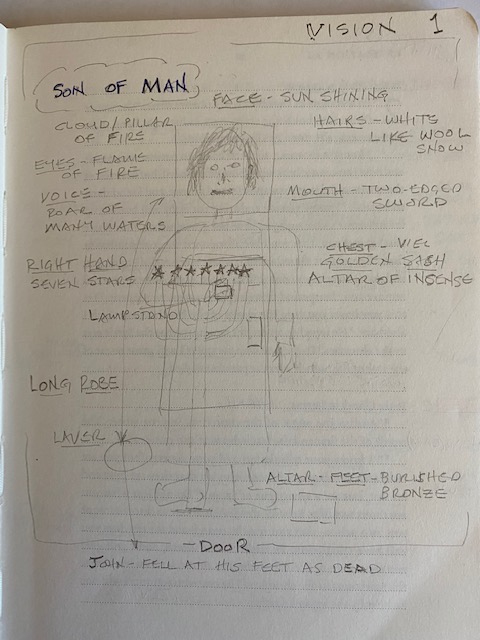 VISION 1
SON OF MAN
FACE - SUN SHINING
CLOUD/PILLAR
OF FIRE
HAIRS - WHITE
LIKE WOOL
SNOW
EYES - FLAME
OF FIRE
MOUTH - TWO-EDGED
SWORD
VOICE -
ROAR OF
MANY WATERS
CHEST - VIEL
GOLDEN SASH
ALTAR OF INSENSE
RIGHT HAND
SEVEN STARS
LAMPSTAND
LONG ROBE
LAVER
ALTAR - FEET - BURISHED
BRONZE
DOOR
JOHN - FELL AT HIS FEET AS DEAD